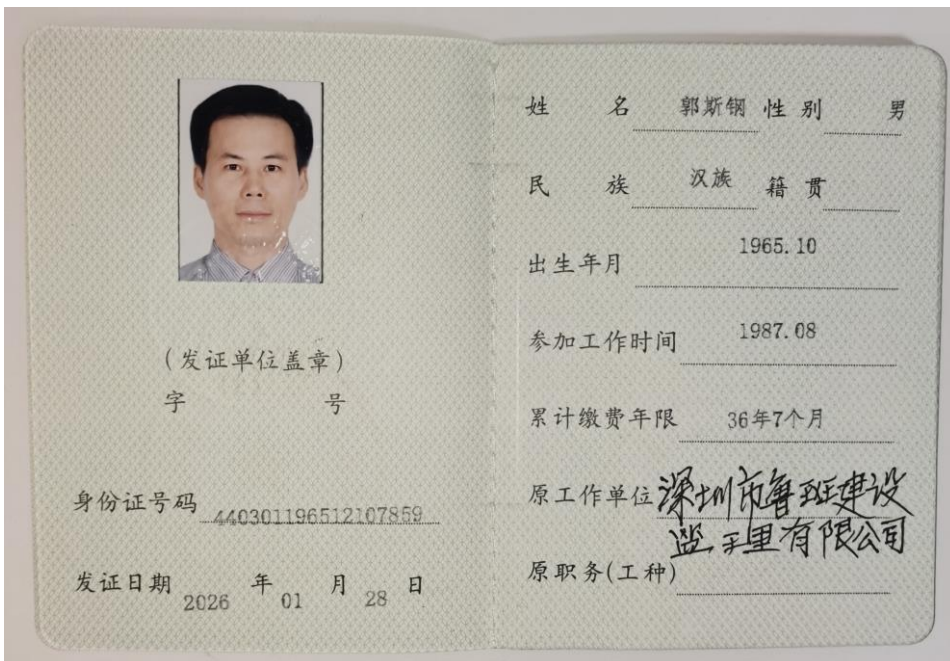 (发证单位盖章)
字 号
身份证号码 440301196512107859
发证日期 2026 年 01 月 28 日
姓名 郭斯钢 性别 男
民族 汉族 籍贯
出生年月 1965.10
参加工作时间 1987.08
累计缴费年限 36年7个月
原工作单位 深圳市鲁班建设
监理有限公司
原职务(工种)